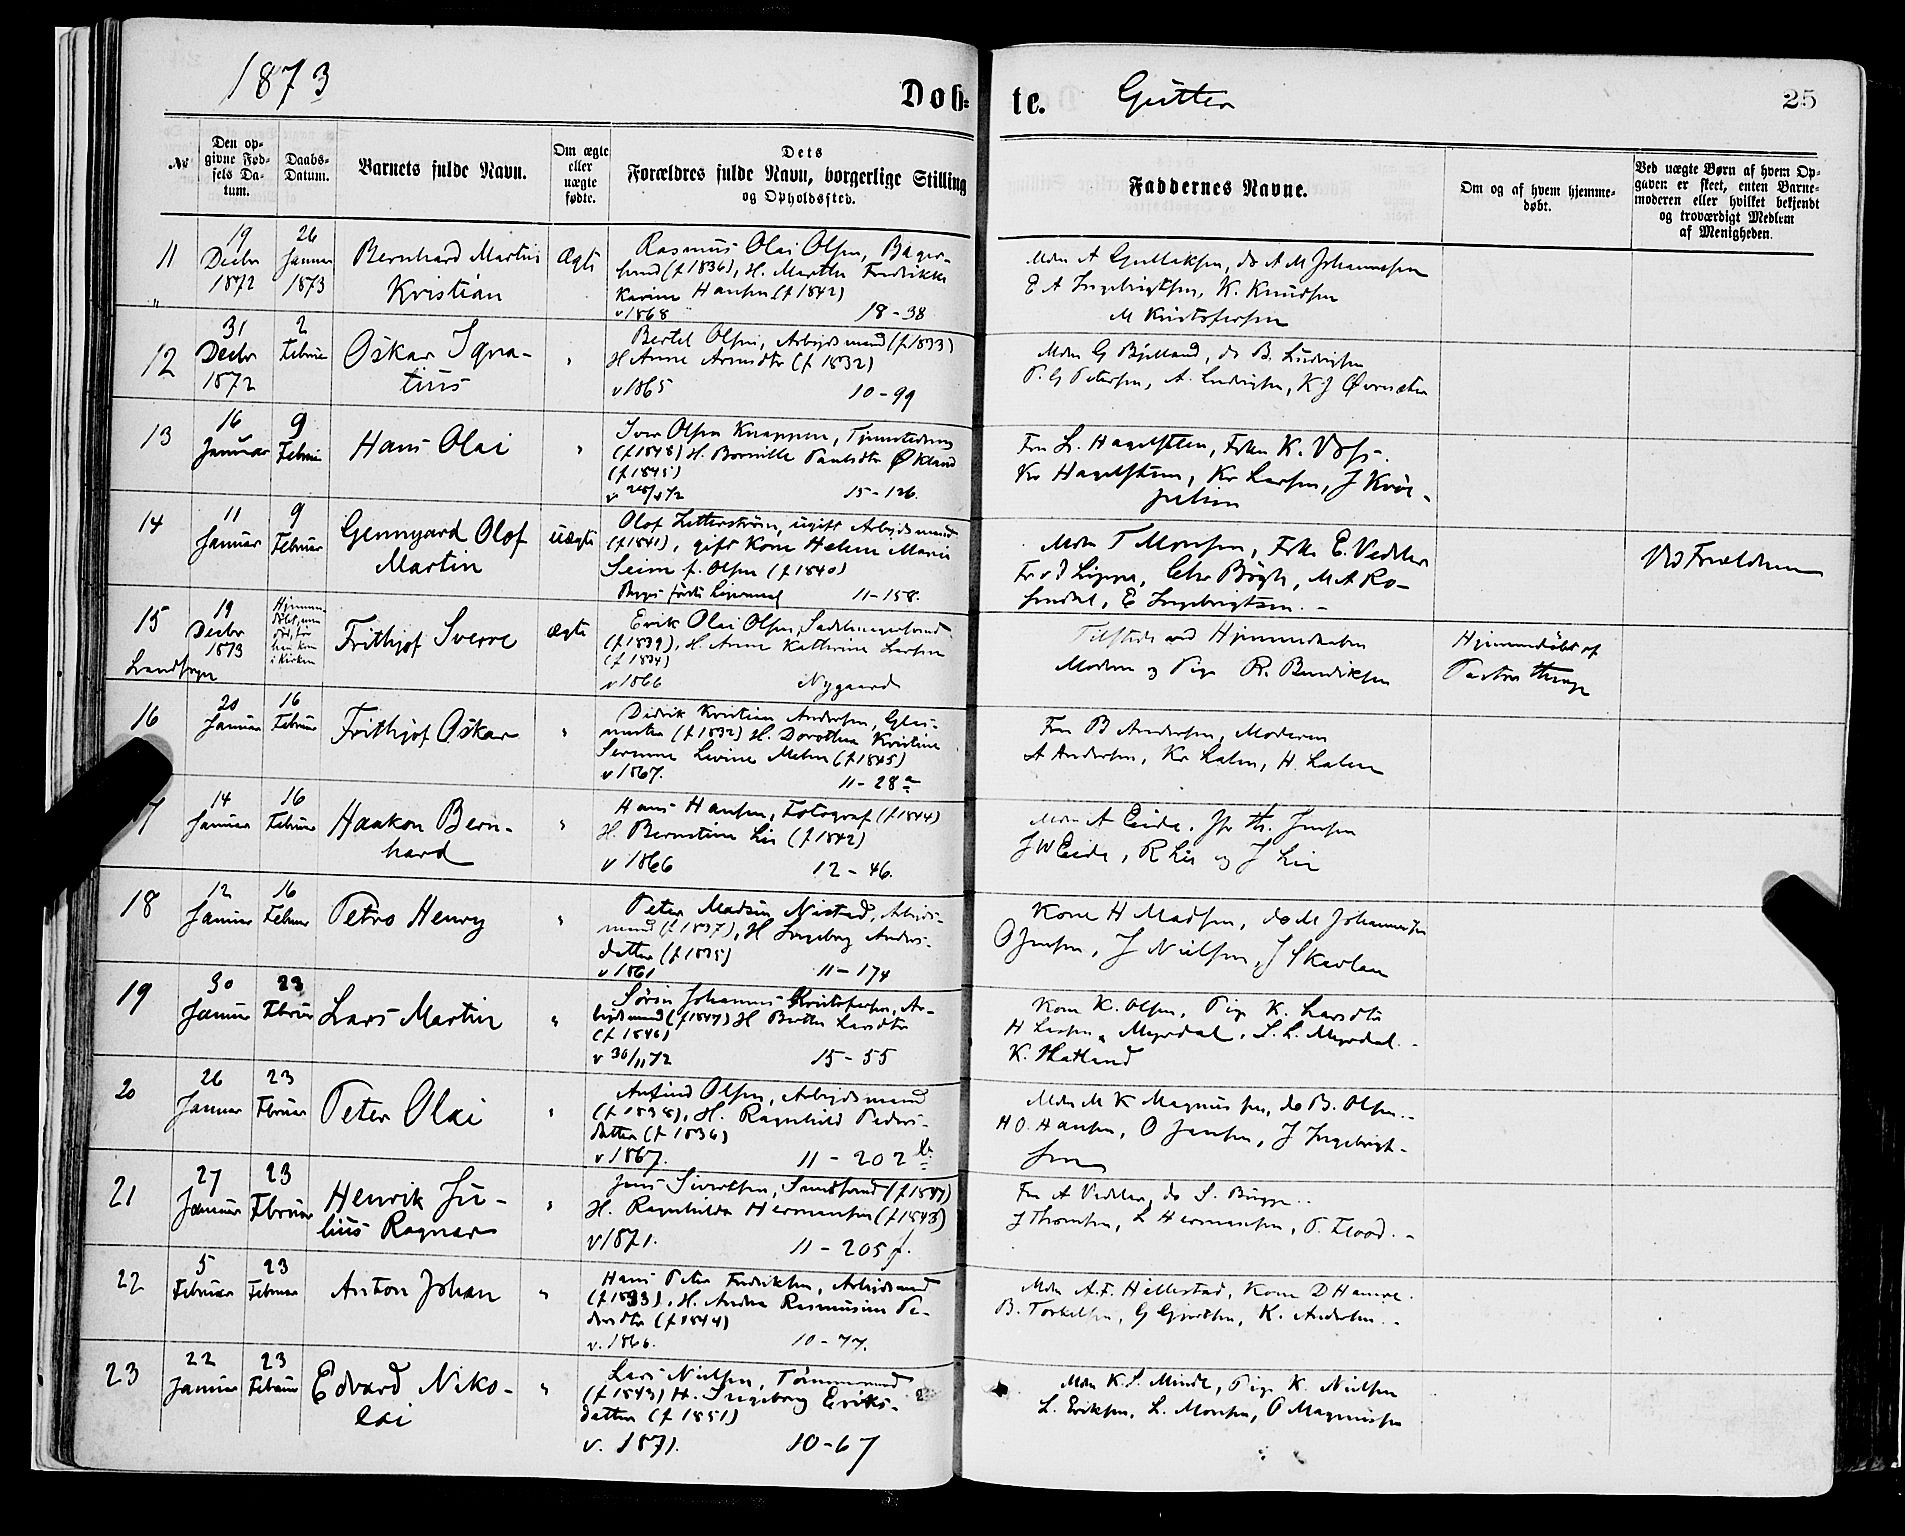 1873
Døb-
te.
Gutter
25
№
Den op-
givne Fød-
sels Da-
tum.
Daabs-
Datum.
Barnets fulde Navn.
Om ægte
eller
uægte
fødte.
Dets
Forældres fulde Navn, borgerlige Stilling
og Opholdssted.
Faddernes Navne.
Om og af hvem hjemme-
døbt.
Ved uægte Børn af hvem Op-
gaven er skeet, enten Barne-
moderen eller hvilket bekjendt
og troværdigt Medlem
af Menigheden.
11
19
Decbr
1872
26
Januar
1873
Bernhard Martin
Kristian
Ægte
Rasmus Olai Olsen, Bager-
svend (f 1836), H. Marthe Fredrikke
Karine Hansen (f 1842)
v 1868 18-38
Mdm A Gullaksen, do A M Johannesen
E A Ingebrigtsen, K. Knudsen
M Kristofersen
12
31
Decbr
1872
2
Februar
Oskar Igna-
tius
"
Bertel Olsen, Arbejdsmand (f 1833)
H Anne Arnesdtr (f 1832)
v 1865 10-99
Mdm G Bjelland, do B. Ludvigsen
P. G Petersen, A. Ludvigsen, K J Øvresæter
13
16
Januar
9
Februar
Hans Olai
"
Iver Olsen Knappen, Tjenestedreng
(f 1848) H. Bornille Paulsdtr Økland
(f 1845)
15-126.
Fru L. Hagelsteen, Frkn K. Voss.
Kr Hagelsteen, Kr Larsen, J
14
11
Januar
9
Februar
Gennyard Olof
Martin
uægte
Olof Zetterstrøm, ugift Arbejdsmand
(f 1841), gift Kone Helene Marie
Seim f. Olsen (f 1840)
Begges første Leiermaal 11-158.
Mdm T Monsen, Frkn E. Vedeler
Fr v d Lippe, Chr Bøgh, M A Ro-
sendal, E Ingebrigtsen.
Ved Forældrene
15
19
Decbr
1873
Landsogn
Hjemme-
i Kirken
Frithjof Sverre
ægte
Erik Olai Olsen, Sadelmagersvend
(f 1839), H. Anne Kathrine Larsen
(f 1834)
v 1866 Nygaard
Tilstede ved Hjemmedaaben
Moderen og Pige R. Bendiksen
Hjemmedøbt af
Pastor
16
20
Januar
16
Februar
Frithjof Oskar
"
Didrik Kristian Andersen, Glas-
mester (f 1832) H. Dorothea Kristine
Severine Levine Malm (f 1845)
v 1867. 11-28 a
Fru B Andersen, Moderen
A Andersen, Kr Lalm, H. Lalm
7
14
Januar
16
Februar
Haakon Bern-
hard
"
Hans Hansen, Fotograf (f 1844)
H. Bernstine Lie (f 1842)
v 1866 12-46.
Mdm A Eide, Jfr Th. Jensen
J W Eide, R Lie og J Lie
18
12
Januar
16
Februar
Petro Henry
"
Peter Madsen Nistad, Arbejds-
mand (f 1837), H Ingeborg Anders-
datter (f 1835)
v 1861 11-174
Kone H Madsen, do M Johannesen
O Jensen, J Nielsen, J Skavlan
19
30
Januar
23
Februar
Lars Martin
"
Søren Johannes Kristofersen, Ar-
bejdsmand (f 1847) H Berthe Larsdtr
(f 1846)
v 30/11 72 15-55
Kone K. Olsen, Pige K. Larsdtr
H Larsen Myrdal, S. L. Myrdal.
K. Hatland
20
26
Januar
23
Februar
Peter Olai
"
Anfind Olsen, Arbejdsmand
(f 1838), H. Ragnhild Peders-
datter (f 1836)
v 1867. 11-202 b
Mdm M K Magnussen, do B. Olsen.
H O. Hansen, O Jensen, J Ingebrigt-
sen
21
27
Januar
23
Februar
Henrik Ju-
lius Ragnar
"
Jens Sivertsen, Smedsvend (f 1847)
H. Ragnhilda Hermansen (f 1843)
v 1871. 11-205 f.
Fru A Vedeler, do S. Bugge.
J Thomsen, L Hermansen, P. Flood.
22
5
Februar
23
Februar
Anton Johan
"
Hans Peter Fredriksen, Arbejdsmand
(f 1833), H. Andrea Rasmusine Pe-
dersdtr (f 1844)
v. 1866. 10-77.
Mdm A. F. Hillestad, Kone D Hamre.
B. Torkelsen, G Gjertsen, K. Andersen.
23
22
Januar
23
Februar
Edvard Niko-
lai
"
Lars Nielsen, Tømmermand
(f 1843) H. Ingeborg Eriks-
datter (f 1851)
v. 1871. 10-67
Mdm K. S. Minde, Pige K. Nielsen
L. Eriksen, L. Monsen, O Magnussen